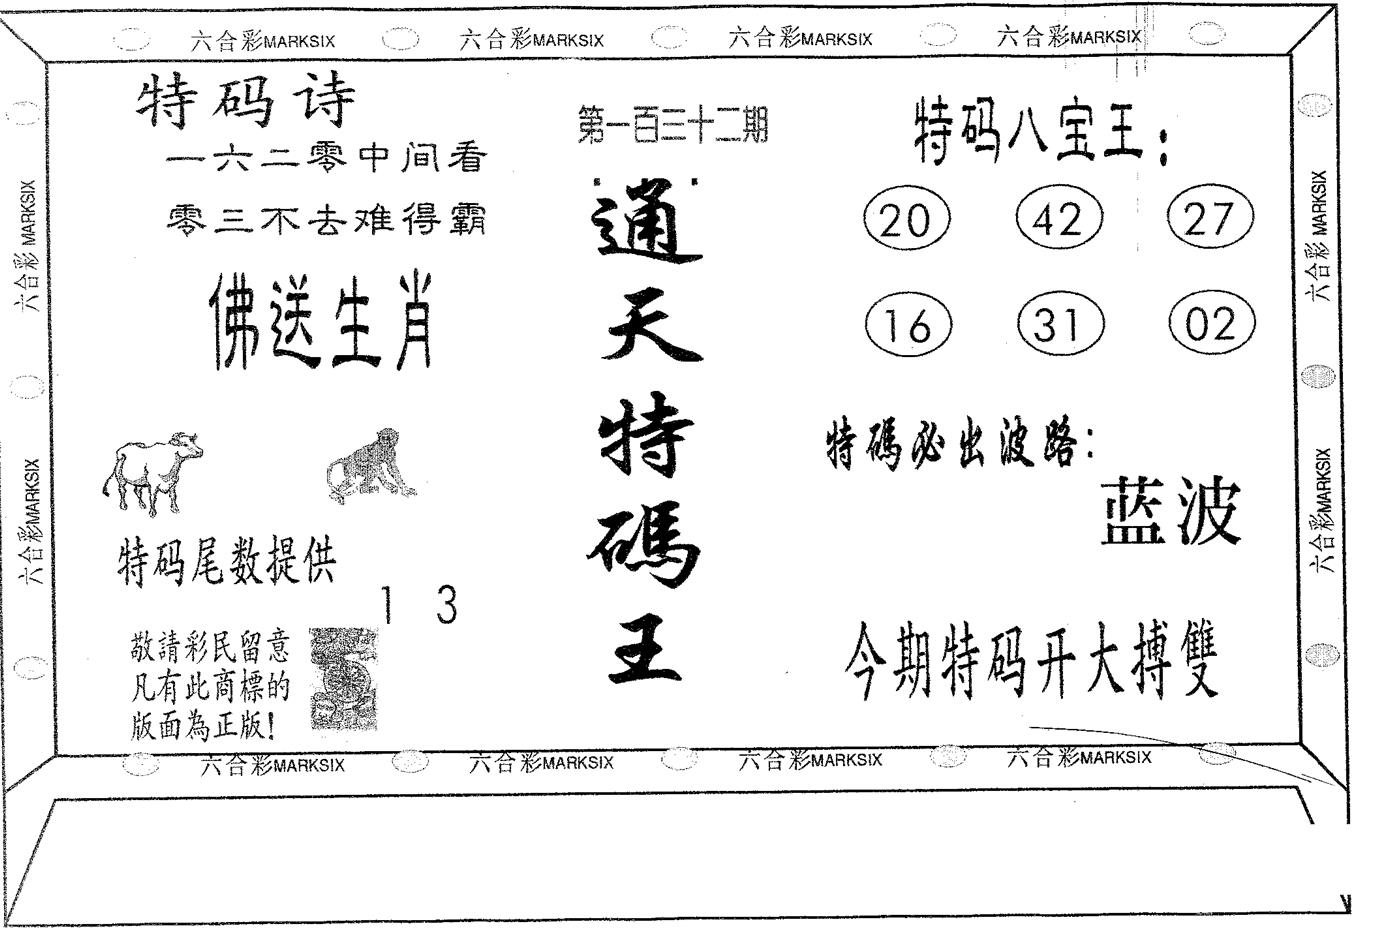 六合彩MARKSIX 六合彩MARKSIX 六合彩MARKSIX 六合彩MARKSIX
六合彩 MARKSIX
六合彩MARKSIX
特码诗
一六二零中间看
零三不去难得霸
佛送生肖
特码尾数提供
1 3
敬請彩民留意
凡有此商標的
版面為正版!
第一百三十二期
通天特碼王
特码八宝王:
20 42 27
16 31 02
特碼必出波路:
蓝波
今期特码开大搏雙
六合彩 MARKSIX
六合彩MARKSIX
六合彩MARKSIX 六合彩MARKSIX 六合彩MARKSIX 六合彩MARKSIX